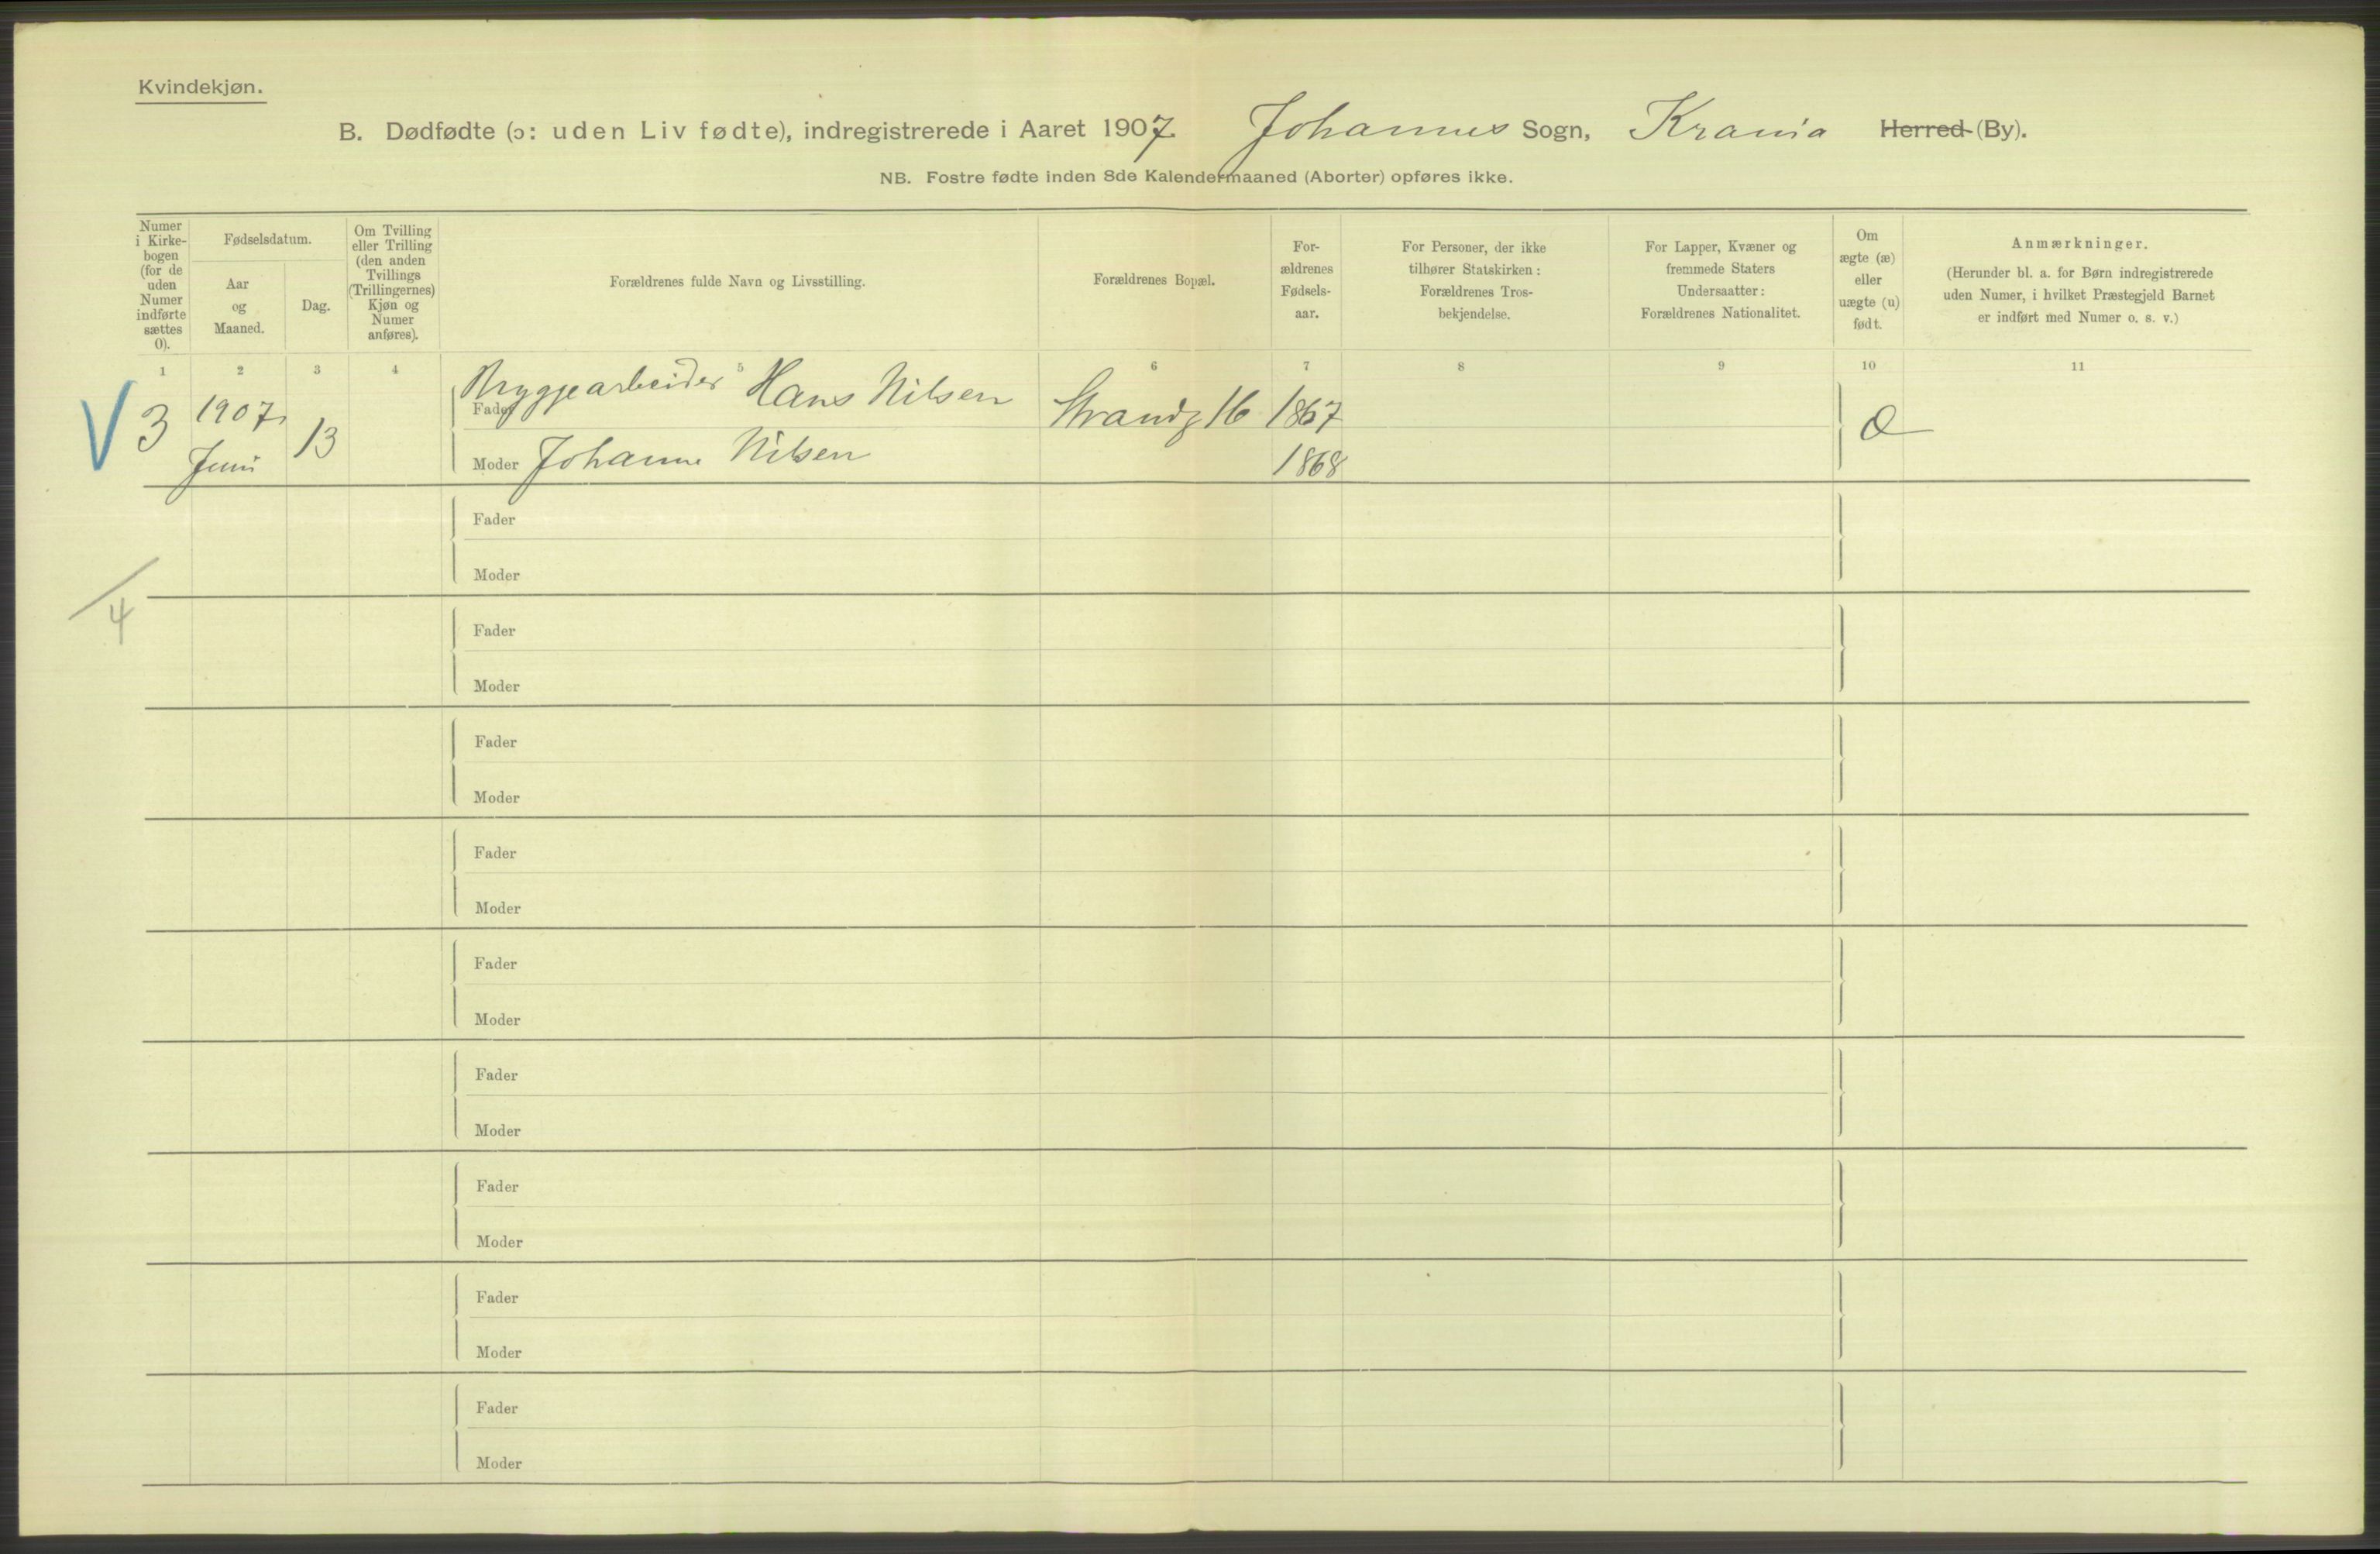 Kvindekjøn.
B. Dødfødte (ɔ: uden Liv fødte), indregistrerede i Aaret 1907. Johannes Sogn, Krania Herred (By).
NB. Fostre fødte inden 8de Kalendermaaned (Aborter) opføres ikke.
Numer i Kirke-bogen (for de uden Numer indførte sættes 0).
Fødselsdatum.
Aar og Maaned.
Dag.
Om Tvilling eller Trilling (den anden Tvillings (Trillingernes) Kjøn og Numer anføres).
Forældrenes fulde Navn og Livsstilling.
Forældrenes Bopæl.
For-ældrenes Fødsels-aar.
For Personer, der ikke tilhører Statskirken: Forældrenes Tros-bekjendelse.
For Lapper, Kvæner og fremmede Staters Undersaatter: Forældrenes Nationalitet.
Om ægte (æ) eller uægte (u) født.
Anmærkninger.
(Herunder bl. a. for Børn indregistrerede uden Numer, i hvilket Præstegjeld Barnet er indført med Numer o. s. v.)
1 2 3 4 5 6 7 8 9 10 11
V 3 1907 Juni 13
Fader Bryggearbeider Hans Nilsen Strandg 16 1867
Moder Johanne Nilsen 1868
Fader
Moder
4
Fader
Moder
Fader
Moder
Fader
Moder
Fader
Moder
Fader
Moder
Fader
Moder
Fader
Moder
Fader
Moder